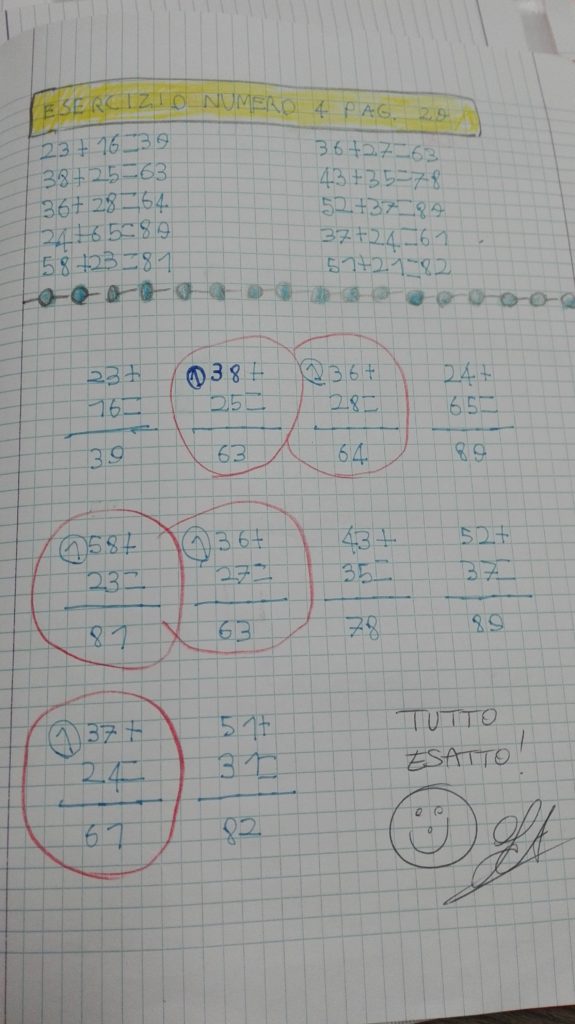 ESERCIZIO NUMERO 4 PAG. 29
23+16=39
38+25=63
36+28=64
24+65=89
58+23=81
36+27=63
43+35=78
52+37=89
37+24=61
51+21=82
23+
16=
39
1 38+
25=
63
1 36+
28=
64
24+
65=
89
1 58+
23=
81
1 36+
27=
63
43+
35=
78
52+
37=
89
1 37+
24=
61
51+
31=
82
TUTTO
ESATTO!